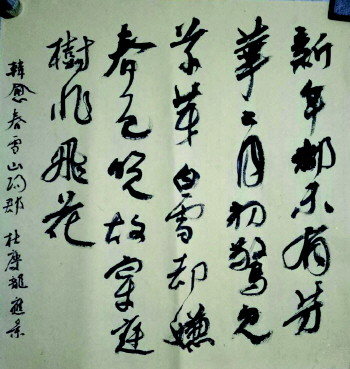 新年都未有芳
華二月初驚見
草芽白雪却嫌
春色晚故穿庭
樹作飛花
韓愈春雪山阳郡 杜慶龍